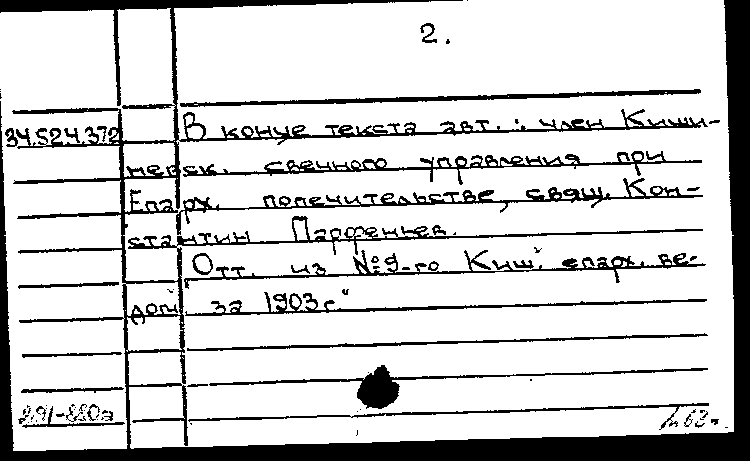 2.
34.524.372 В конце текста авт.: член Киши-
невск. свечного управления при
Епарх. попечительстве, свящ. Кон-
стантин Парфеньев.
"Отт. из №9-го Киш. епарх. ве-
дом. за 1903 г."
291-880а